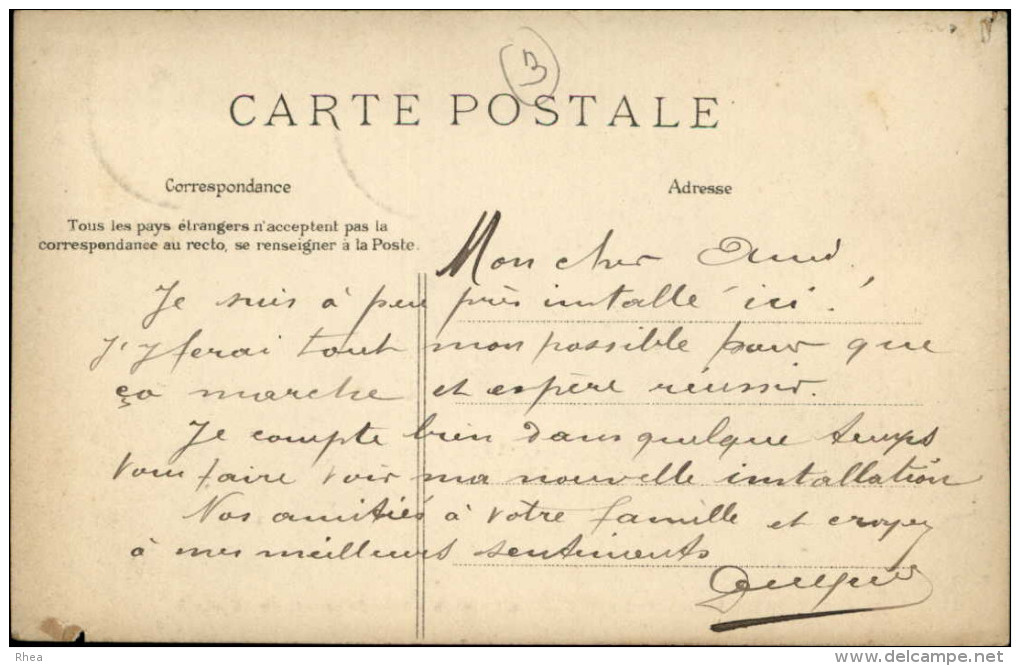 3
CARTE POSTALE
Correspondance
Adresse
Tous les pays étrangers n'acceptent pas la
correspondance au recto, se renseigner à la Poste.
Mon cher Ami,
Je suis à peu près installé ici !
J'y ferai tout mon possible pour que
ça marche et espère réussir.
Je compte bien dans quelque temps
vous faire voir ma nouvelle installation
Nos amitiés à votre famille et croyez
à mes meilleurs sentiments
Rhea
www.delcampe.net